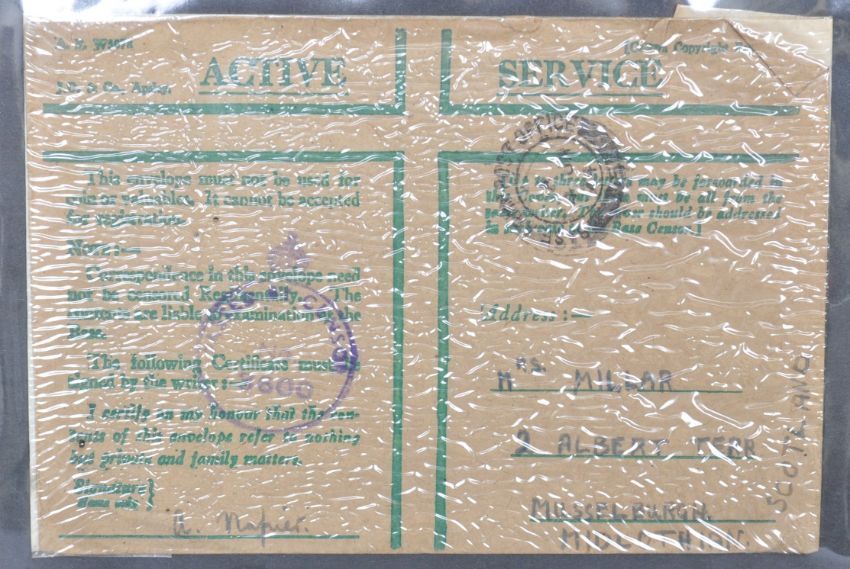 A. F. W3078
[Crown Copyright
J.D. & Co., Apsley.
ACTIVE SERVICE
This envelope must not be used for
coin or valuables. It cannot be accepted
for registration.
NOTE:—
Correspondence in this envelope need
not be censored Regimentally. The
contents are liable to examination at the
Base.
The following Certificate must be
signed by the writer:—
I certify on my honour that the con-
tents of this envelope refer to nothing
but private and family matters.
Signature
Name only
A. Napier.
CENSOR
POST OFFICE
may be forwarded in
must be all from the
should be addressed
Base Censor.]
Address:—
MRS. MILLAR
2 ALBERT TERR
MUSSELBURGH
MIDLOTHIAN.
SCOTLAND